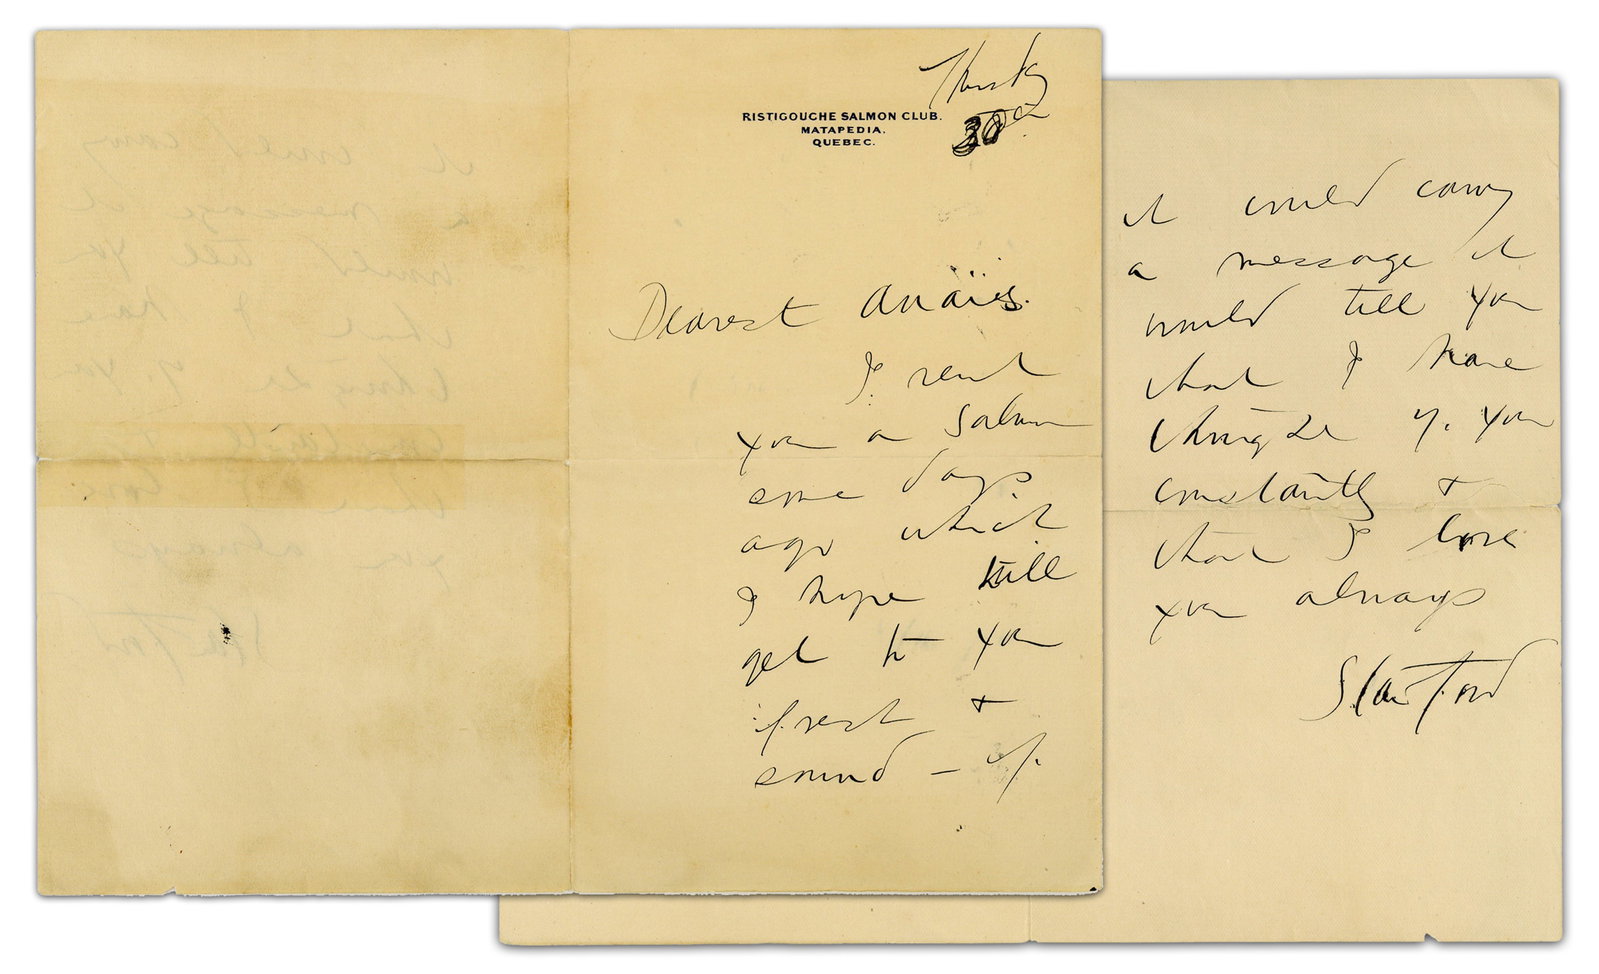 Thursday
30th
RISTIGOUCHE SALMON CLUB.
MATAPEDIA.
QUEBEC.
Dearest Anaïs.
I sent
you a salmon
some days
ago which
I hope will
get to you
fresh &
sound – if
it could carry
a message it
would tell you
that I have
thought of you
constantly &
that I love
you always
Stanford